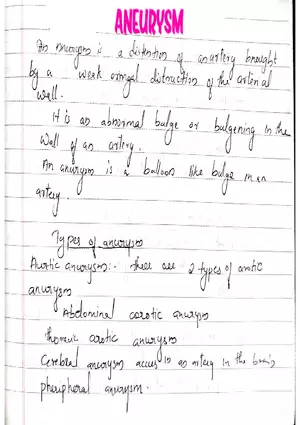 ANEURYSM
An aneurysm is a distention of an artery brought
by a weak or inngal distruction of the arterial
wall.
It is an abnormal bulge or bulgening in the
wall of an artery.
An aneurysm is a balloon like bulge in an
artery.
Types of aneurysm
Aurtic aneurysm:- there are 2 types of arotic
aneurysm
Abdominal carotic aneurysm
thoracic arotic aneurysm.
Cerebral aneurysm accus in an artery in the brain
pheripheral aneurysm.